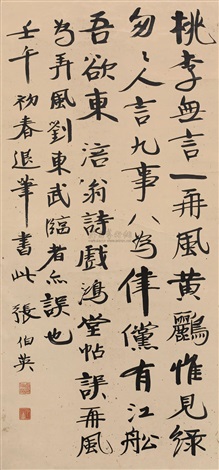 桃李無言一再風黃鸝惟見綠
匆〻人言九事八為律儻有江船
吾欲東 涪翁詩戲鴻堂帖誤再風
為弄風劉東武臨者亦誤也
壬午初春退筆書此 張伯英